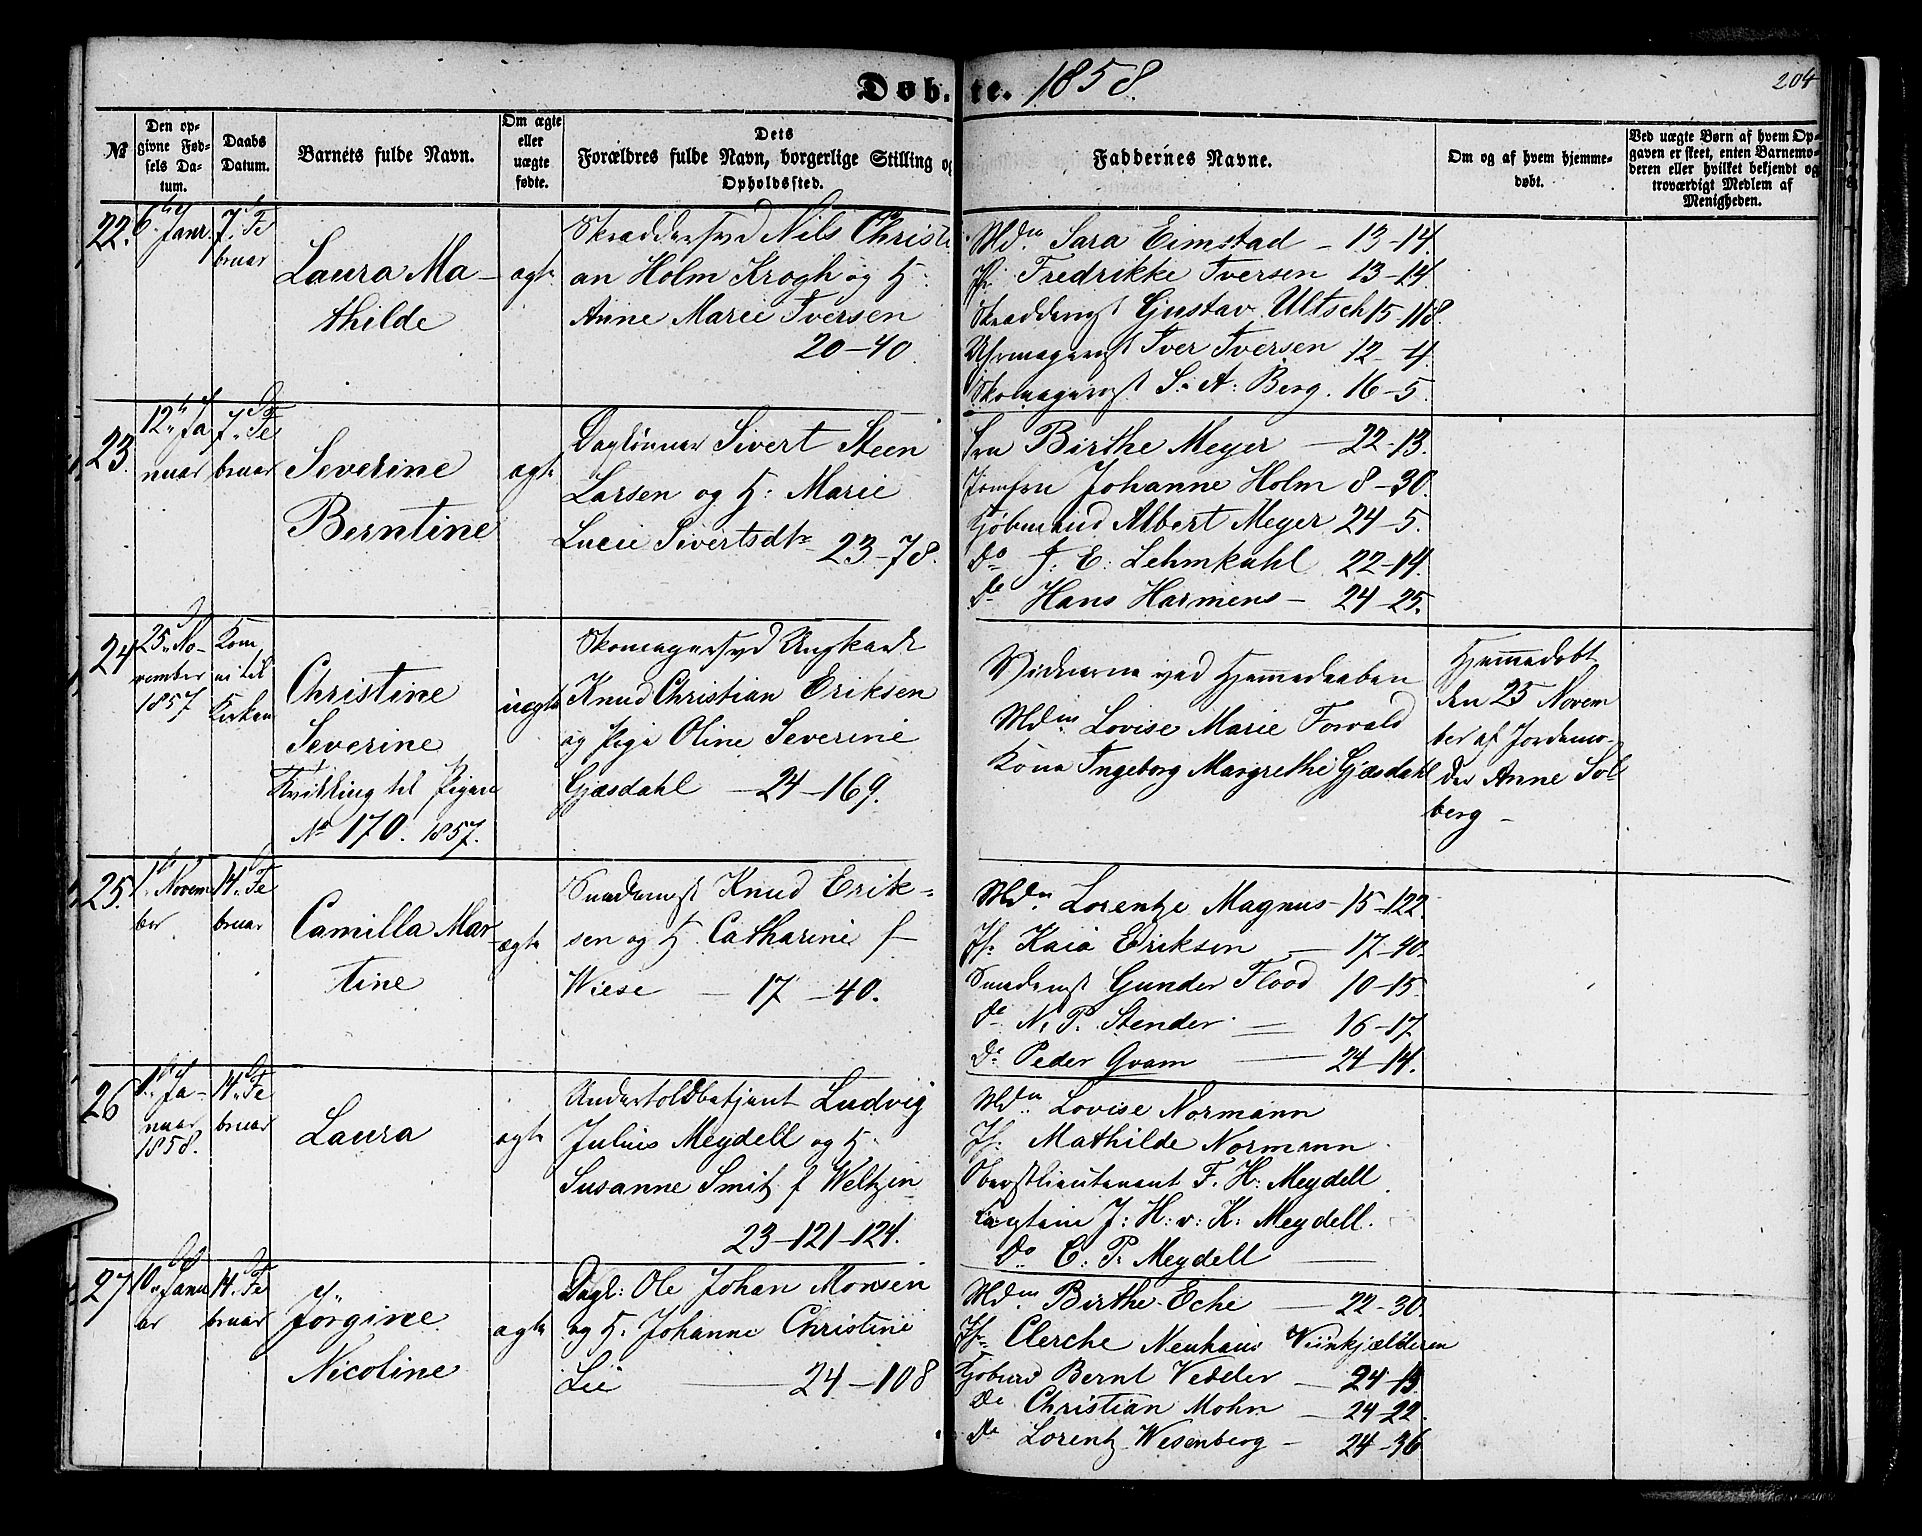 Døbte. 1858.
204
№
Den opgivne Fødsels Datum.
Daabs Datum.
Barnets fulde Navn.
Om ægte eller uægte fødte.
Dets
Forældres fulde Navn, borgerlige Stilling og
Opholdssted.
Faddernes Navne.
Om og af hvem hjemmedøbt.
Ved uægte Børn af hvem Opgaven er skeet, enten Barnemoderen eller hvilket bekjendt og troværdigt Medlem af Menigheden.
22.
6te Janr.
7de Februar
Laura Ma-
thilde
ægte
Skræddersvd Nils Christi
an Holm Krogh og H:
Anne Marie Iversen
20-40.
Mdm Sara Eimstad - 13-14.
Jfr: Fredrikke Iversen 13-14
Skræddermst Gjustav Ultsch 15-118.
Uhrmagermst Iver Iversen 12-4
Skomagermst S: A: Berg. 16-5.
23.
12te Ja
nuar
7de Fe
bruar
Severine
Berntine
ægte
Daglønner Sivert Steen
Larsen og H: Marie
Lucie Sivertsdtr 23-78.
Fru Birthe Meyer - 22-13.
Jomfru Johanne Holm 8-30.
Kjøbmand Albert Meyer 24-5.
Do J: E: Lehmkuhl 22-14.
Do Hans Harmens - 24-25.
24
25de No-
vember
1857
Kom
ei til
Kirken
Christine
Severine
Tvilling til Pigen
No 170. 1857.
uægte
Skomagersvd Ungkarl
Knud Christian Eriksen
og Pige Oline Severine
Gjæsdahl - 24-169.
Vidnerne ved Hjemmedaaben
Mdm Lovise Marie Torvald
Kone Ingeborg Margrethe Gjæsdahl
Hjemmedøbt
den 25 Novem
ber af Jordemo-
der Anne Sol
berg -
25.
1te Novem
ber
14de Fe
bruar
Camilla Mar
tine
ægte
Snedkermst Knud Erik-
sen og H. Catharine f
Wiese - 17-40.
Mdm Lorentze Magnus - 15-122
Jfr: Kaia Eriksen - 17-40.
Snedkermst Gunder Flood 10-15.
do N. P. Stender - 16-17
Do Peder Qvam - 24-14.
26
1te Ja-
nuar
1858.
14de Fe
bruar
Laura
ægte
Undertoldbetjent Ludvig
Julius Meydell og H.
Susanne Smit f Weltzin
23-121-124.
Mdm Lovise Normann
Jfr: Mathilde Normann
Oberstlieutenant F. H: Meydell
Captein J: H: v: K: Meydell.
Do C: P: Meydell
27
10de Janu
ar
14de Fe
bruar
Jörgine
Nicoline
ægte
Dagl: Ole Johan Monsen
og H. Johanne Christine
Lie - 24-108
Mdm Birthe Eche - 22-30.
Jfr: Clerche Neuhaus Viinkjælderen
Kjøbmd Bernt Vedder - 24-13.
Do Christian Mohn - 24-22.
Do Lorentz Wesenberg - 24-36